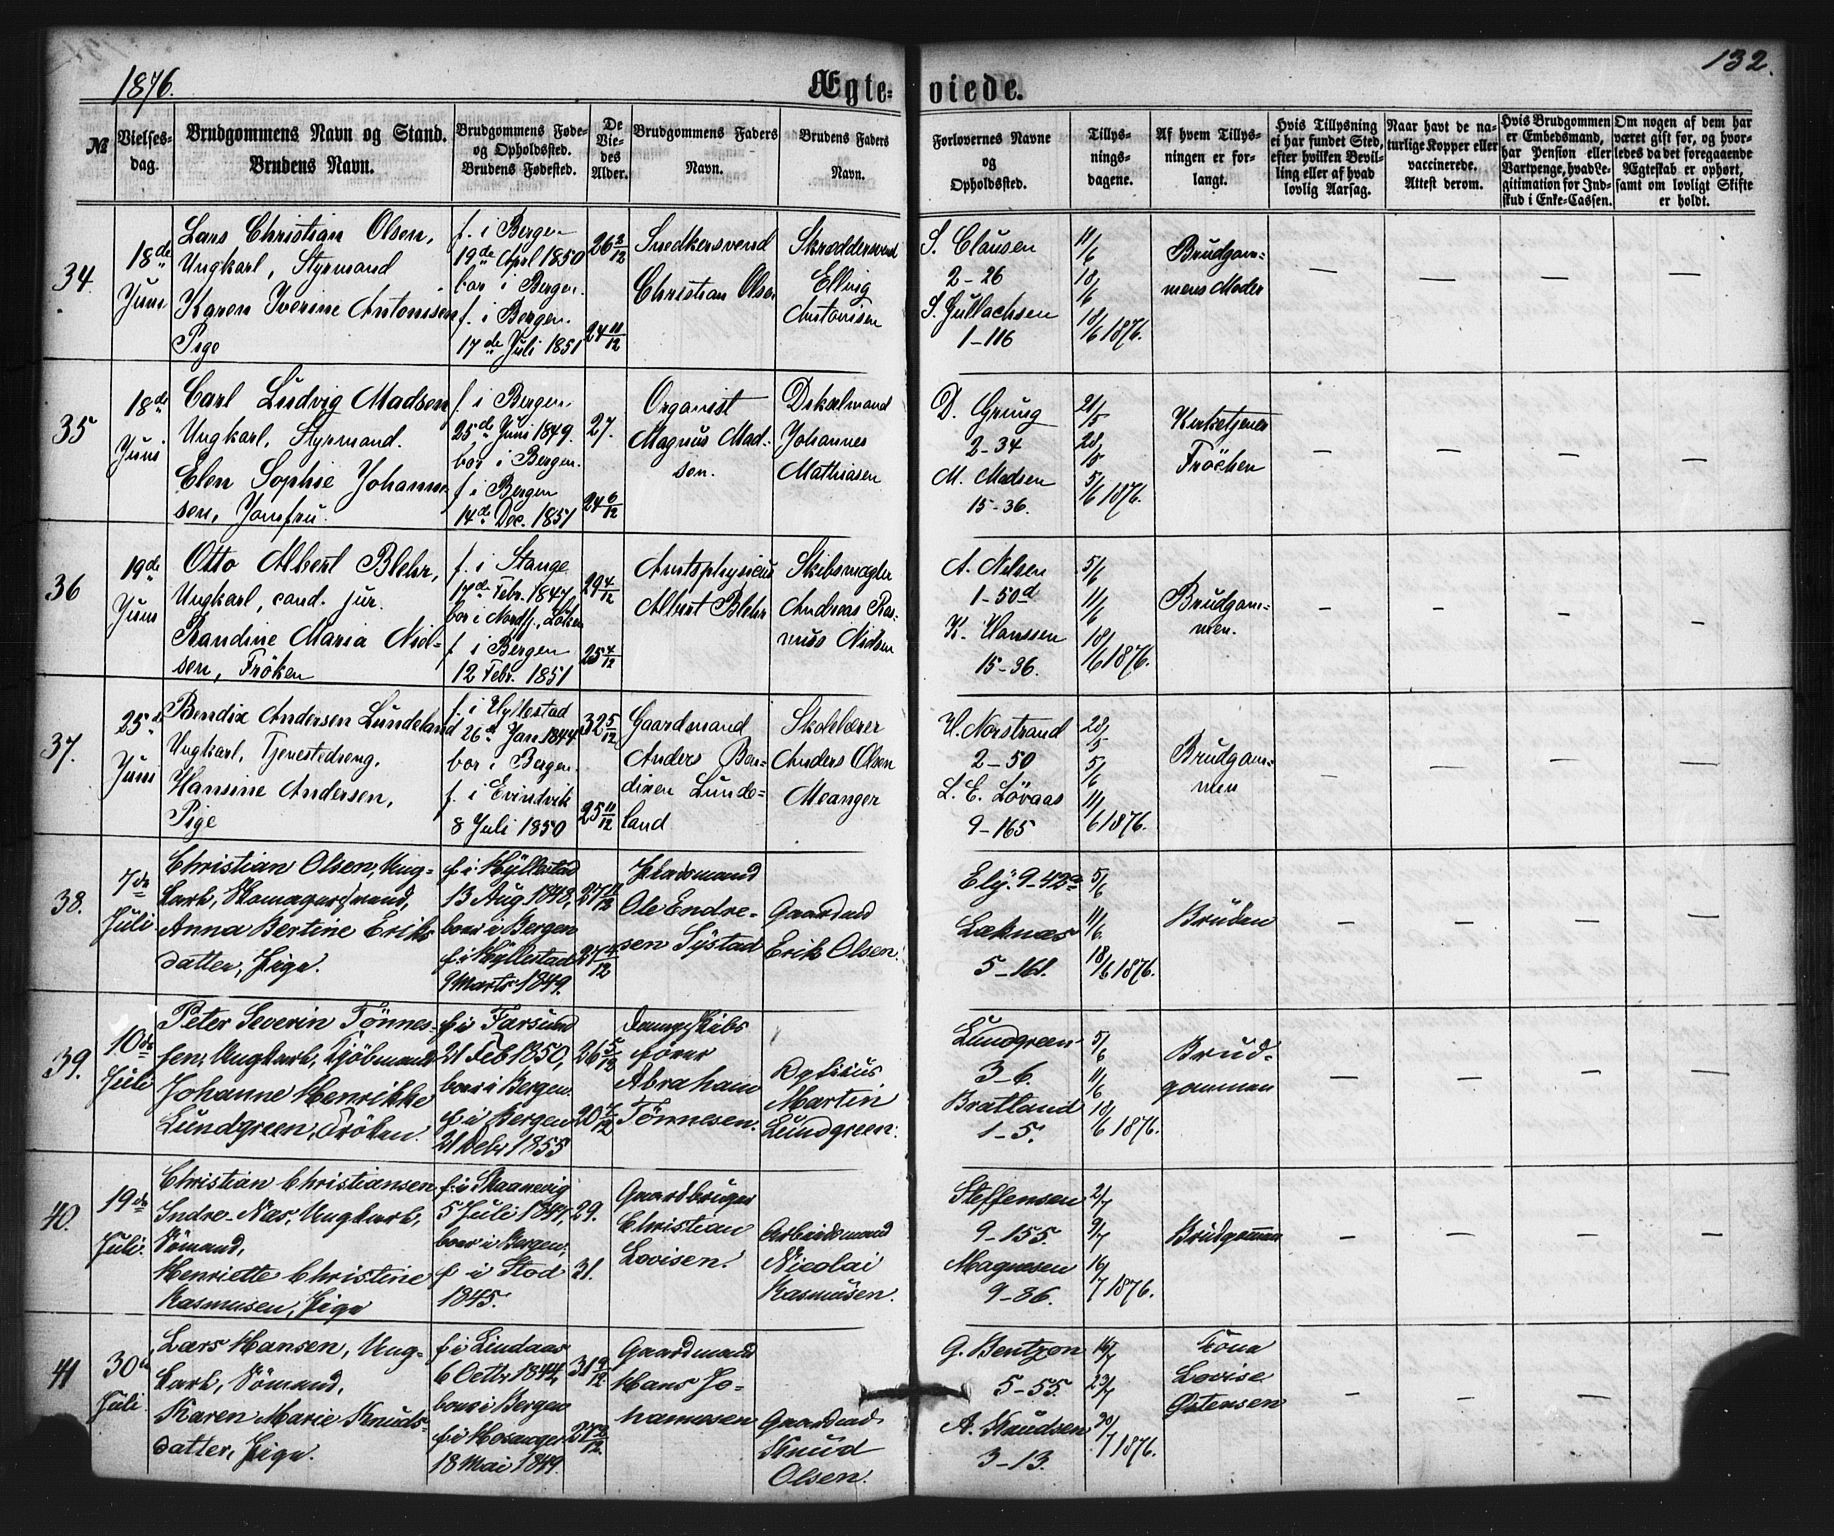 1876.
Ægte-viede.
132.
№
Vielses-dag.
Brudgommens Navn og Stand.
Brudens Navn.
Brudgommens Føde- og Opholdssted.
Brudens Fødested.
De Vie-des Alder.
Brudgommens Faders Navn.
Brudens Faders Navn.
Forlovernes Navne og Opholdssted.
Tillys-nings-dagene.
Af hvem Tillys-ningen er for-langt.
Hvis Tillysning ei har fundet Sted, efter hvilken Bevil-ling eller af hvad lovlig Aarsag.
Naar havt de na-turlige Kopper eller vaccinerede. Attest derom.
Hvis Brudgommen er Embedsmand, har Pension eller Vartpenge, hvad Le-gitimation for Ind-skud i Enke-Cassen.
Om nogen af dem har været gift før, og hvor-ledes da det foregaaende Ægteskab er ophørt, samt om lovligt Skifte er holdt.
34.
18de Juni
Lars Christian Olsen,
Ungkarl, Styrmand
Karen Iverine Antonisen
Pige
f. i Bergen
19de April 1850
bor i Bergen.
f. i Bergen.
17de Juli 1851
26 2/12
24 11/12
Snedkersvend
Christian Olsen
Skræddersvend
Elling
Antonisen
S. Clausen
2-26
S. Gullachsen
1-116
11/6
18/6
18/6 1876.
Brudgom-
mens Moder
35
18de Juni
Carl Ludvig Madsen
Ungkarl, Styrmand.
Elen Sophie Johanne-
sen, Jomfru.
f. i Bergen.
25de Juni 1849.
bor i Bergen.
f. i Bergen
14de Dec. 1851
27.
24 6/12
Organist
Magnus Mad-
sen.
Johannes
Mathiasen
D. Grung
2-34
M. Madsen
15-36.
21/5
28/5
5/6 1876.
Kirketjener
Fröchen
36
19de Juni
Otto Albert Blehr,
Ungkarl, cand. jur.
Randine Maria Niel-
sen, Fröken
f. i Stange
17de Febr. 1847
f. i Bergen
12 Febr. 1851
29 4/12
25 4/12
Amtsphysicus
Albert Blehr
Skibsmægler
Andreas Ras-
mus Nielsen
A. Nilsen
1-50d
K. Hanssen
15-36.
5/6
11/6
18/6 1876.
Brudgom-
men.
37.
25d Juni
Bendix Andersen Lundeland
Ungkarl, Tjenestedreng.
Hansine Andersen,
Pige
f. i Hyllestad
26d Jan. 1844
bor i Bergen.
f. i Evindvik
8 Juli 1850
32 5/12
25 11/12
Gaardmand
Anders Ben-
dixen Lunde-
land.
Skolelærer
Anders Olsen
Meanger
H. Norstrand
2-50
L. E. Lövaas
9-165
28/5
5/6
11/6 1876.
Brudgom-
men
38.
7de Juli
Christian Olsen, Ung-
karl, Skomagersvend,
Anna Bertine Eriks-
datter, Pige.
f i Hyllestad
13 Aug 1848,
boer i Bergen
f. i Hyllestad
9 Marts 1849.
27 11/12
27 4/12
Pladsmand
Ole Endre-
sen Systad
Gaardmd
Erik Olsen.
Ely. 9-42a
Leknæs
5-161.
5/6
11/6.
18/6 1876.
Bruden
39.
10de Juli
Peter Severin Tönnes-
sen, Ungkarl, Kjöbmand
Johanne Henrikke
Lundgreen, Fröken.
f i Farsund
21 Feb 1850,
boer i Bergen.
f i Bergen
21 Debr 1855
26 5/12
20 7/12
Dampskibs
förer
Abraham
Tönnesen.
Martin
Lundgreen.
Lundgreen
3-6.
Bratland
1-5.
5/6
11/6
18/6 1876.
Brud-
gommen
40.
19de Juli.
Christian Christiansen
Indre-Næs, Ungkarl,
Sömand,
Henriette Christine
Rasmusen, Pige
f. i Skaanevig
5 Juli 1847,
boer i Bergen,
f i Stod
1845.
29.
31.
Gaardbruger
Christian
Lovisen.
Arbeidsmand
Nicolai
Rasmusen.
Steffensen
9-155.
Magnesen
9-86.
2/7
9/7
16/7 1876.
Brudgommen
41
30de Juli
Lars Hansen, Ung-
karl, Sömand,
Karen Marie Knuds-
datter, Pige.
f i Lindaas
6 Octbr 1844,
boer i Bergen
f i Hosanger
18 Mai 1849.
31 9/12
27 2/12
Gaardmand
Hans Jo-
hannesen
Gaardmd
Knud
Olsen.
G. Bentzon
5-55.
A. Knudsen
3-13.
16/7
23/7
30/7 1876.
Lovise
Östensen